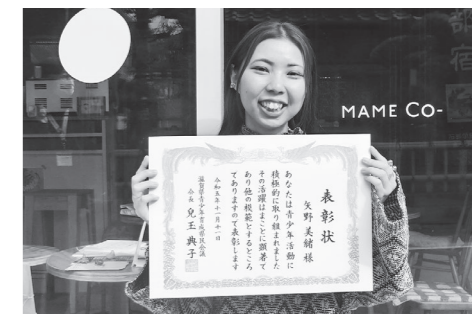 表彰状
矢野美緒 様
あなたは青少年活動に
積極的に取り組まれました
その活躍はまことに顕著で
あり他の模範とするところ
でありますので表彰します
令和五年十一月十一日
滋賀県青少年育成県民会議
会長 兒玉典子
MAME CO-
宿